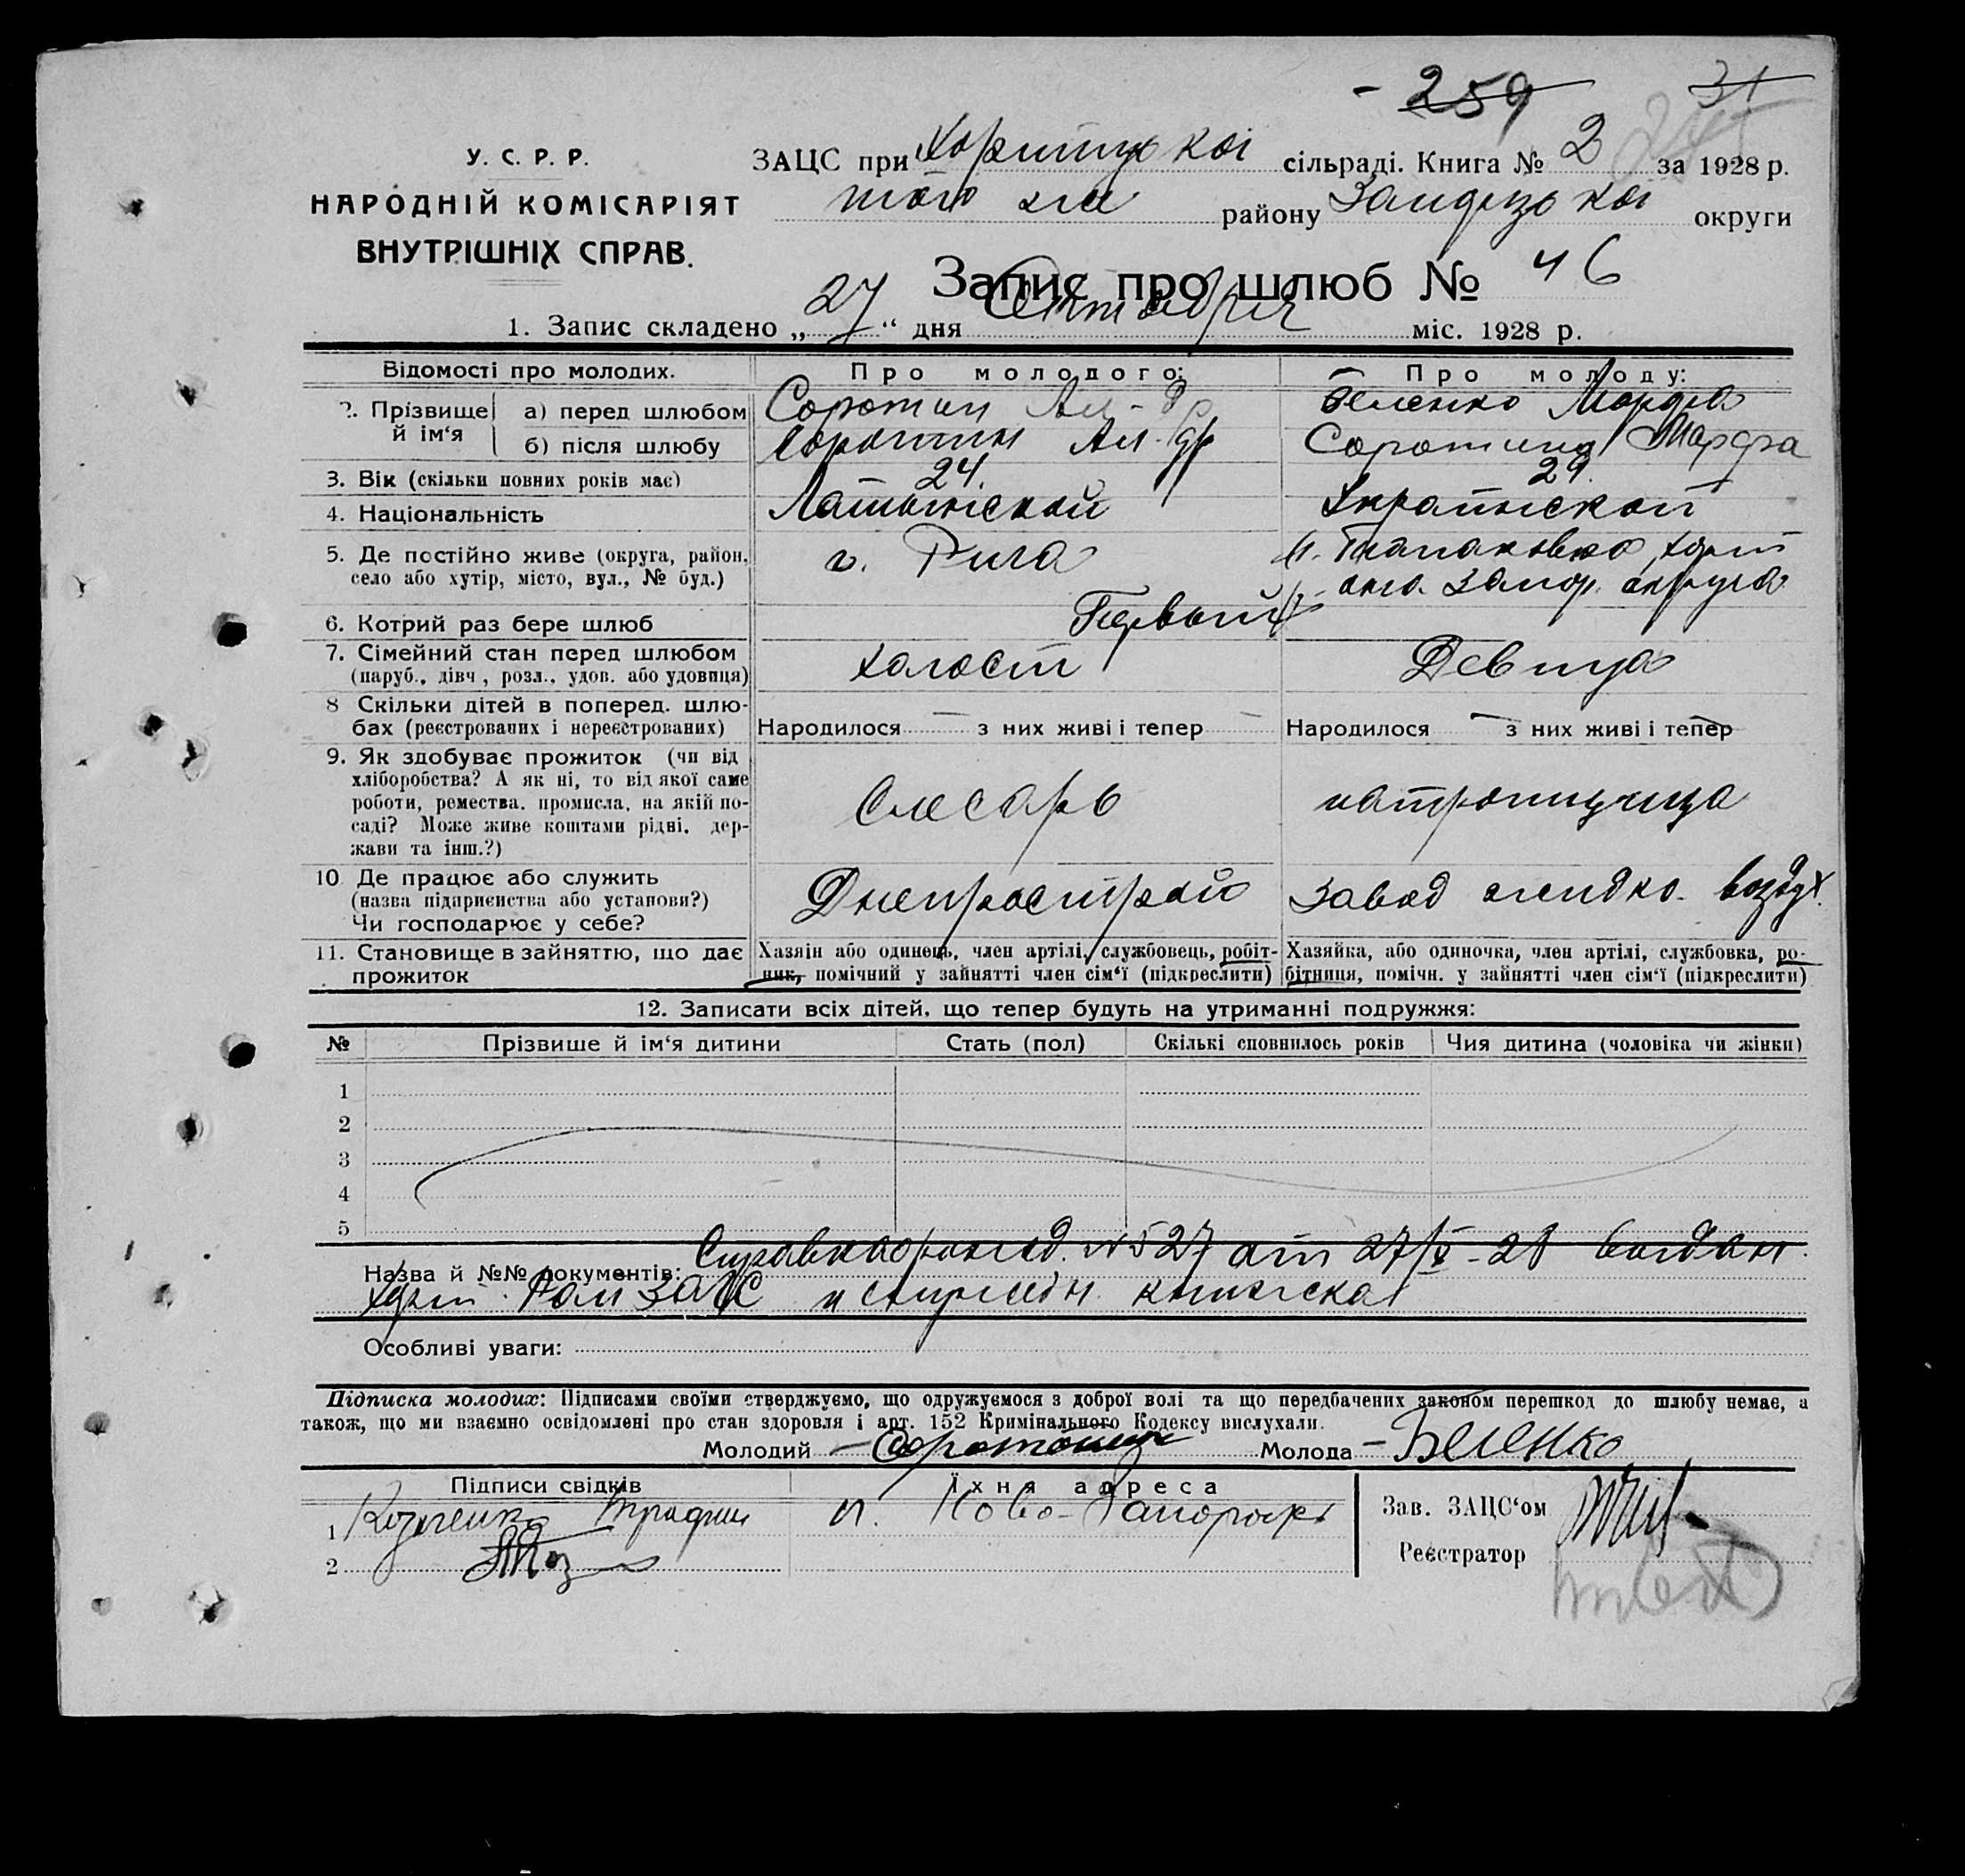 - 259 31
У. С. Р. Р.
НАРОДНІЙ КОМІСАРІЯТ
ВНУТРІШНІХ СПРАВ.
ЗАЦС при Хортицької сільраді. Книга № 2 за 1928 р.
того же району округи
Запис про шлюб № 46
1. Запис складено „27“ дня міс. 1928 р.
Відомості про молодих. Про молодого: Про молоду:
2. Прізвище й ім‘я а) перед шлюбом Соротин Ал-др Беленко Марфа
б) після шлюбу Соротин Ал-др Соротина Марфа
3. Вік (скільки повних років має) 24. 29.
4. Національність Латышской Украинской
5. Де постійно живе (округа, район, село або хутір, місто, вул., № буд.) г. Рига Запор. округа
6. Котрий раз бере шлюб Первый
7. Сімейний стан перед шлюбом (паруб., дівч, розл., удов. або удовиця) холост Девица
8 Скільки дітей в поперед. шлюбах (реєстрованих і нереєстрованих) Народилося — з них живі і тепер — Народилося — з них живі і тепер
9. Як здобуває прожиток (чи від хліборобства? А як ні, то від якої саме роботи, ремества, промисла, на якій посаді? Може живе коштами рідні, держави та інш.?) Слесарь
10 Де працює або служить (назва підприєнства або установи?) Чи господарює у себе? Днепрострой Завод жидко. воздух.
11. Становище в зайняттю, що дає прожиток Хазяін або одинець, член артілі, службовець, робітник, помічний у зайнятті член сім‘ї (підкреслити) Хазяйка, або одиночка, член артілі, службовка, робітниця, помічн. у зайнятті член сім‘ї (підкреслити)
12. Записати всіх дітей, що тепер будуть на утриманні подружжя:
№ Прізвише й ім‘я дитини Стать (пол) Скількі сповнилось років Чия дитина (чоловіка чи жінки)
1
2
3
4
5
Назва й №№ документів: Справка №527 от 27/X-28 выдан.
Хорт. Рай ЗАГС и книжска
Особливі уваги:
Підписка молодих: Підписами своїми стверджуємо, що одружуємося з доброї волі та що передбачених законом перешкод до шлюбу немає, а
також, що ми взаємно освідомлені про стан здоровля і арт. 152 Кримінального Кодексу вислухали.
Молодий — Молода — Беленко
Підписи свідків Їхня адреса
1 п. Ново-Запорожье Зав. ЗАЦС‘ом
2 Реєстратор